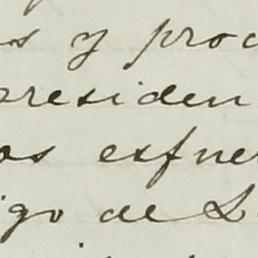 s y proc
presiden
os esfue
igo de L